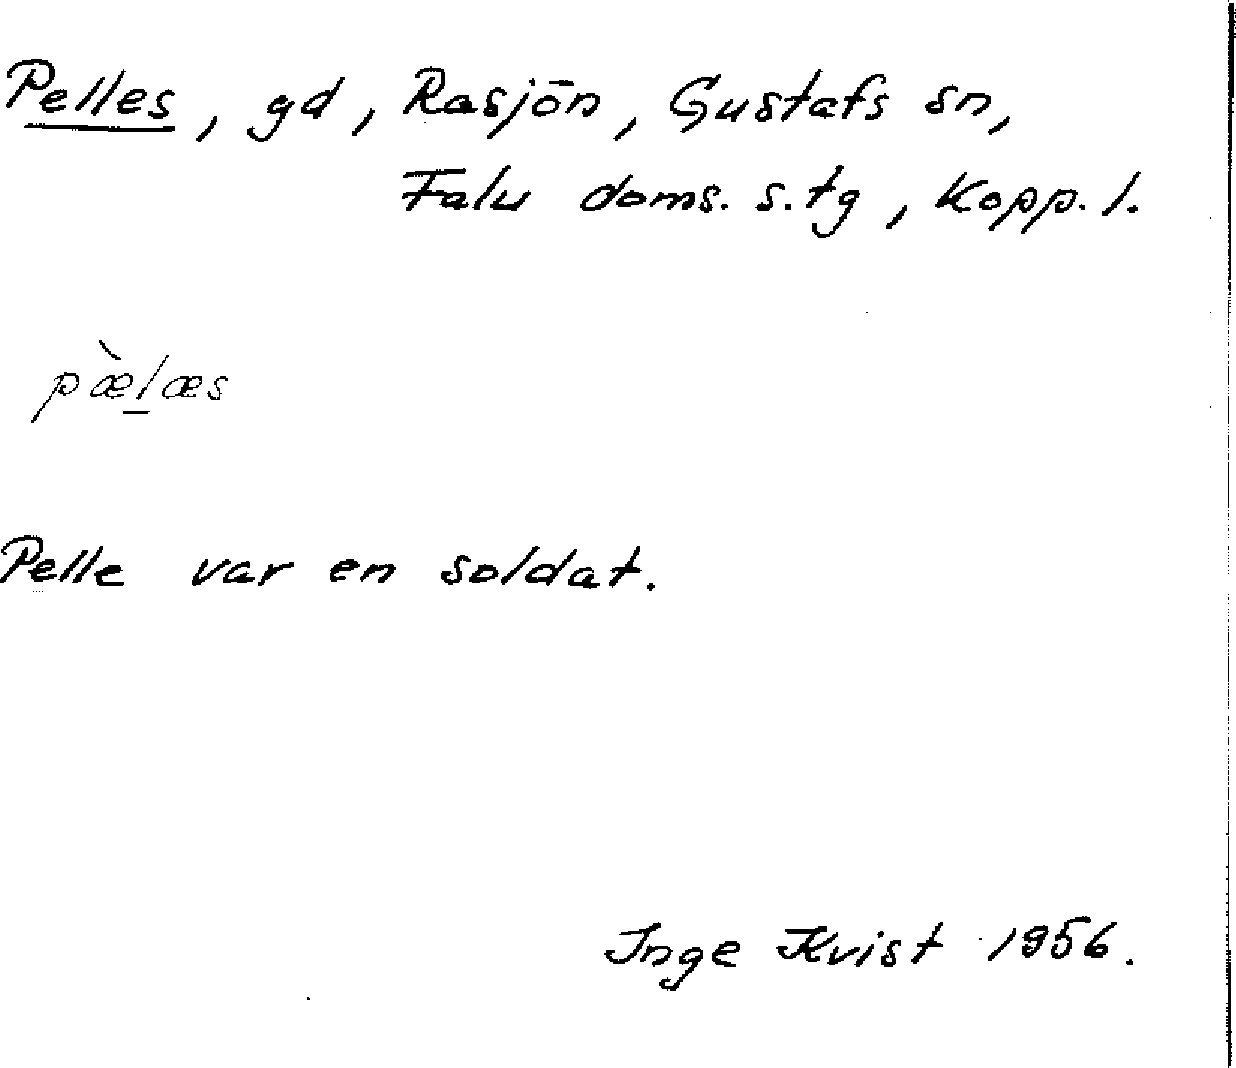 Pelles, gd, Rasjön, Gustafs sn,
Falu doms. s. tg, Kopp. l.
pæ̀l̲æs
Pelle var en soldat.
Inge Kvist 1956.